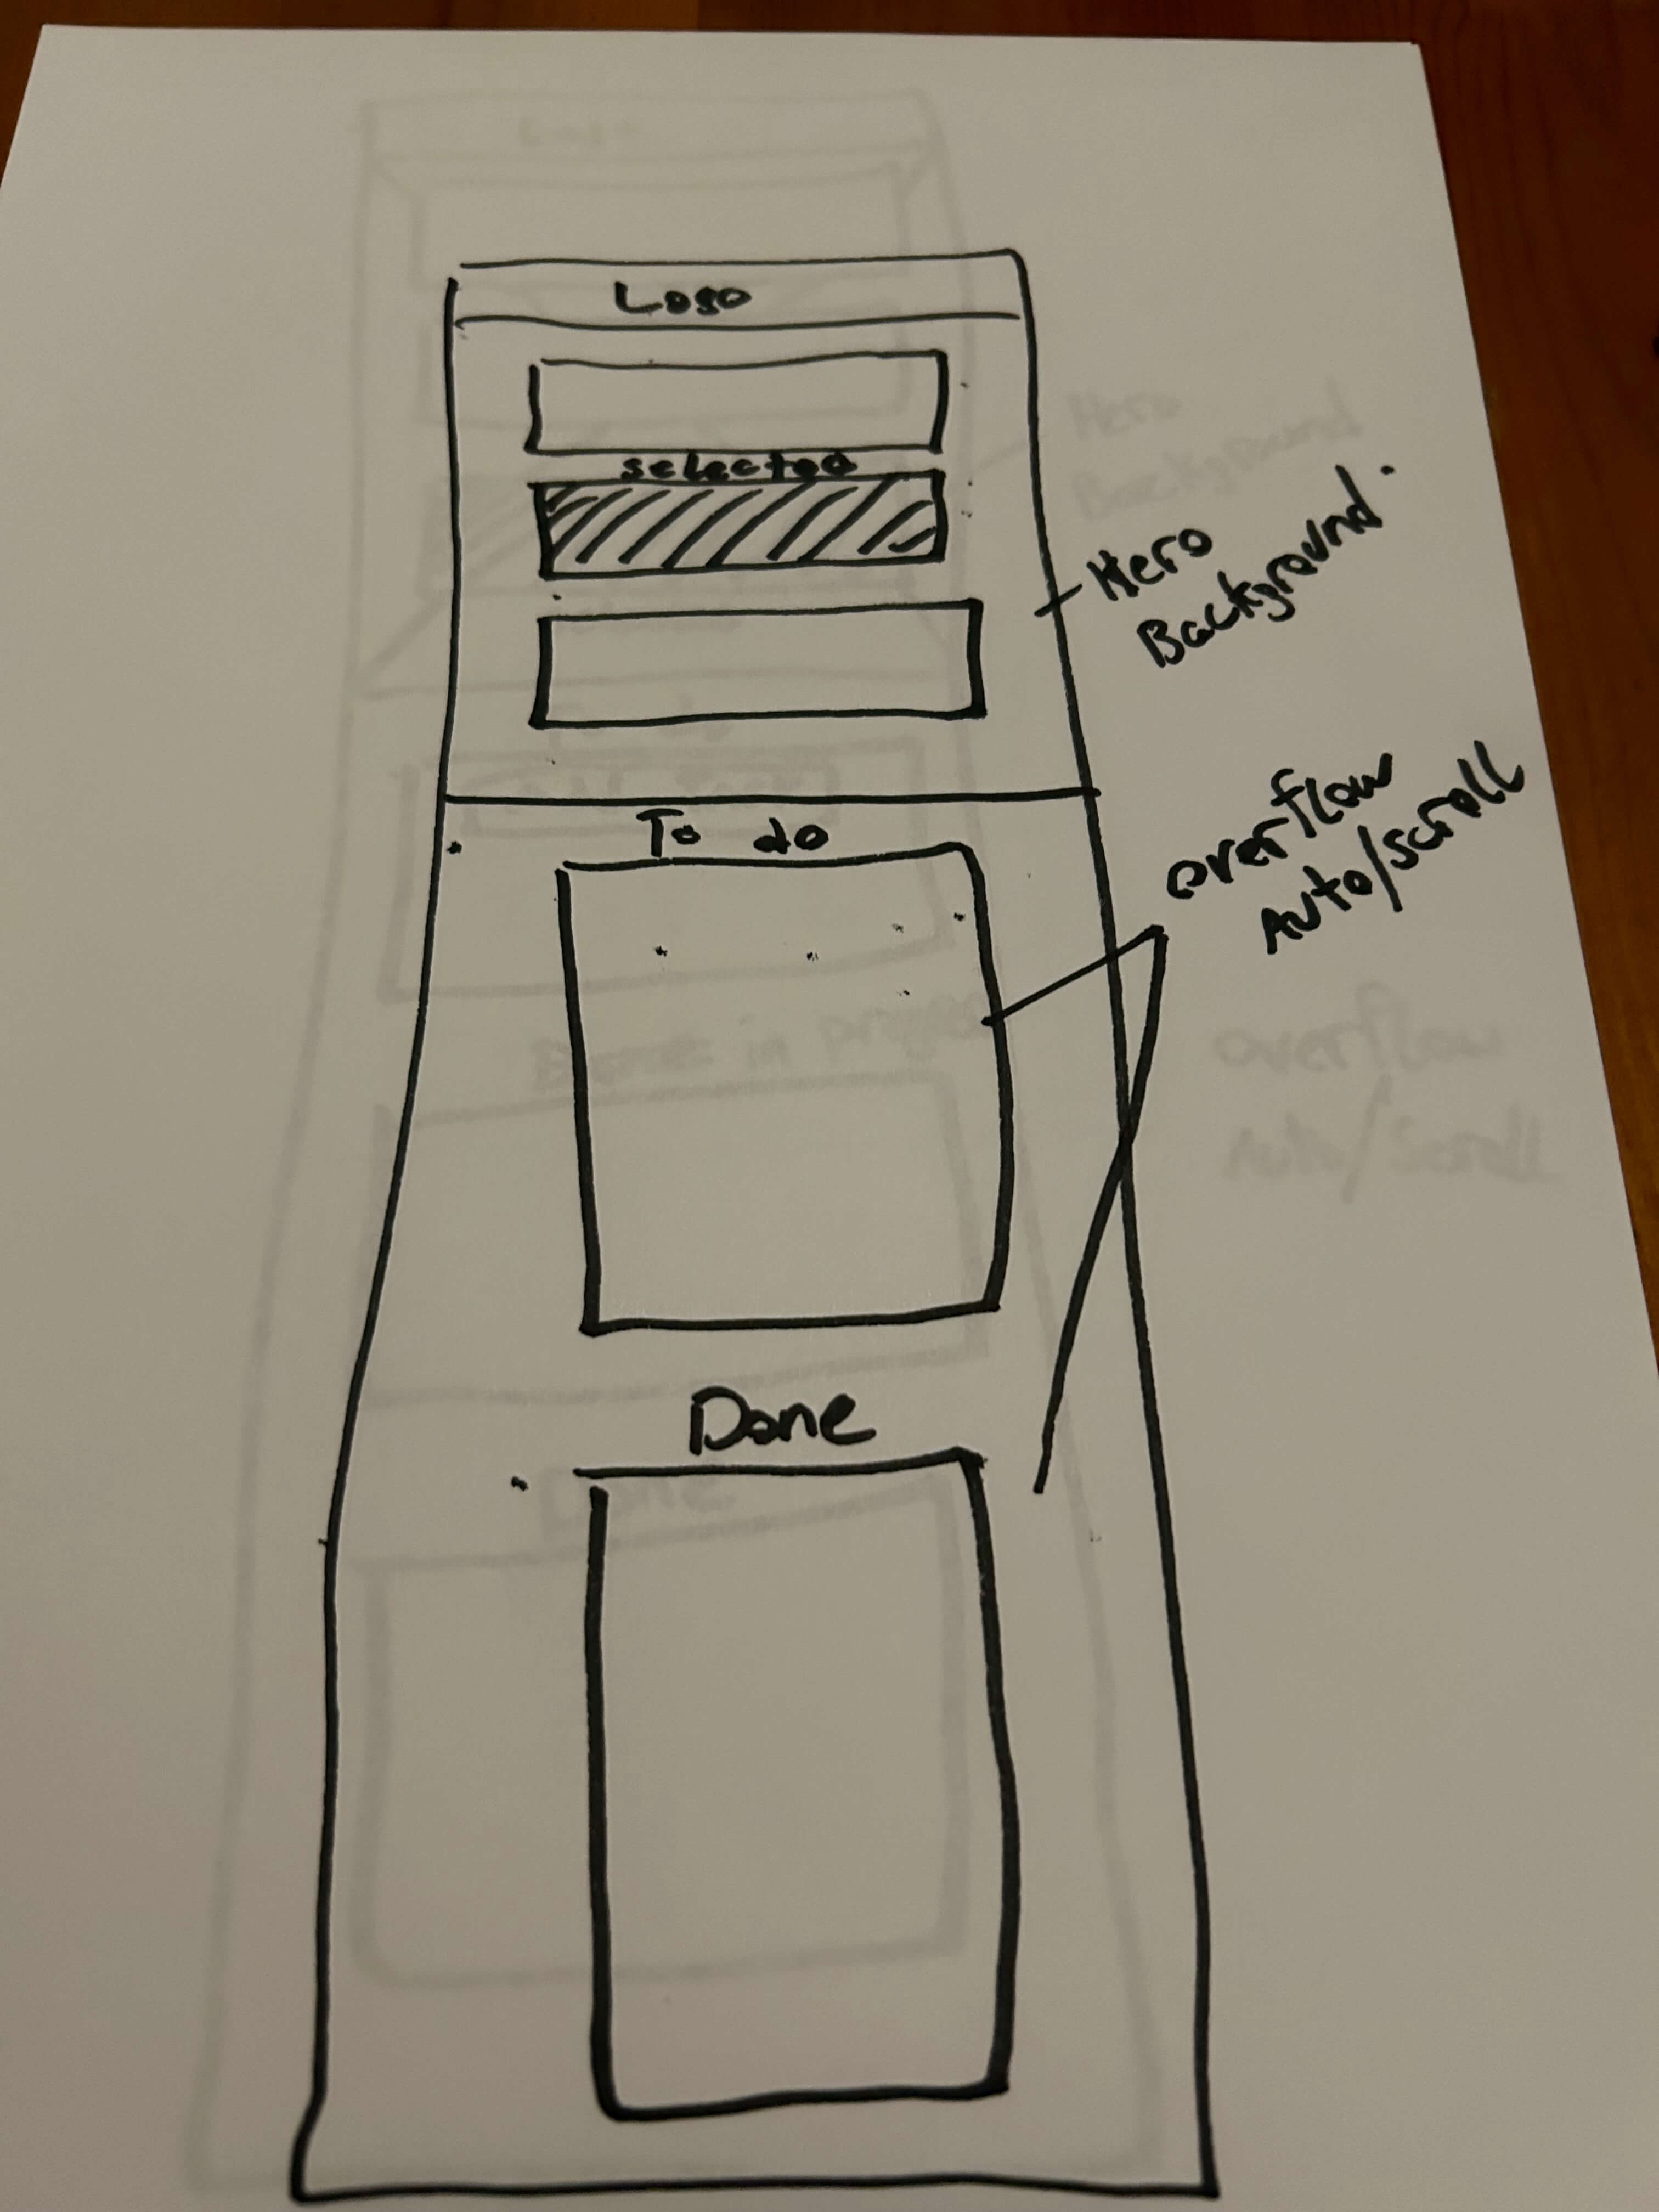 Logo
selected
Hero
Background.
To do
overflow
Auto/scroll
Done